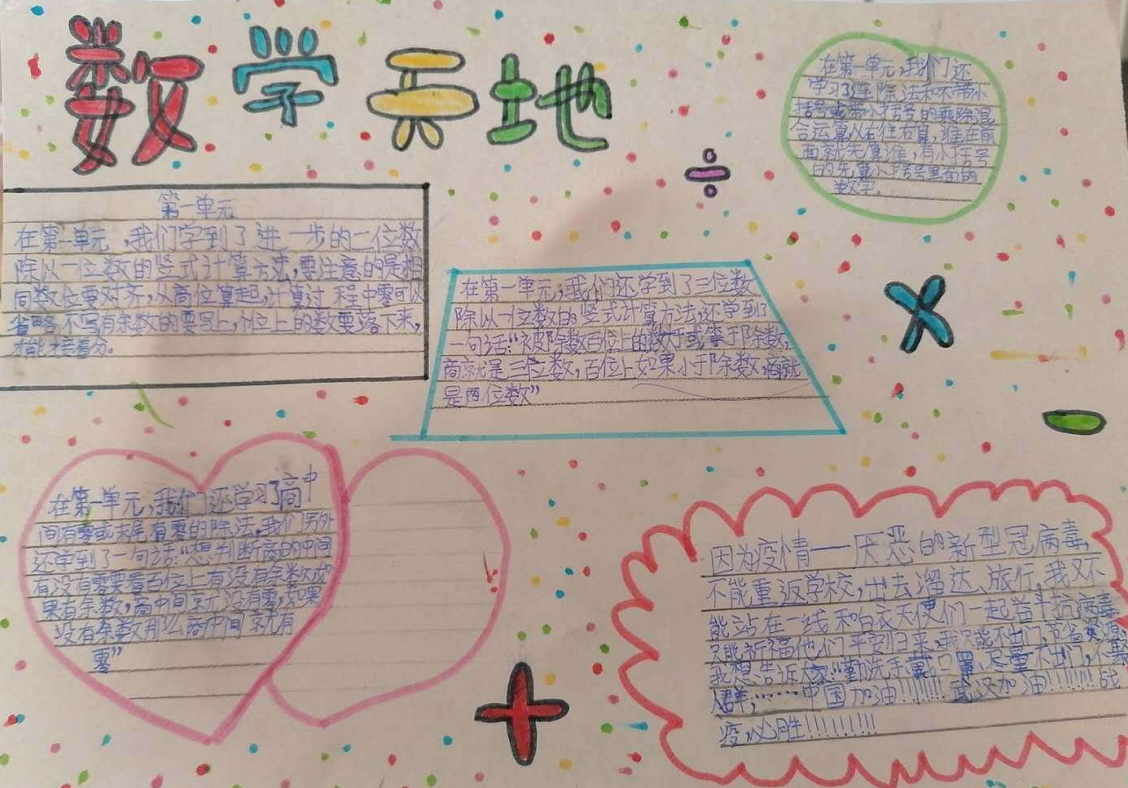 数学天地
在第一单元,我们还
学习了连除法和不带小
括号或带小括号的乘除混
合运算从左往右算,谁在前
面就先算谁,有小括号
的先算小括号里面的
数字
第一单元
在第一单元,我们学到了进一步的二位数
除以一位数的竖式计算方法,要注意的是相
同数位要对齐,从高位算起,计算过程中零可以
省略不写有余数的要写上,个位上的数要落下来,
才能接着分。
在第一单元,我们还学到了三位数
除以一位数的竖式计算方法,还学到了
一句话:“被除数百位上的数大于或等于除数,
商就是三位数,百位上如果小于除数,商就
是两位数”
在第一单元,我们还学习了商中
间有零或末尾有零的除法,我们另外
还学到了一句话:“想判断商的中间
有没有零要看百位上有没有余数如
果有余数,商中间就没有零,如果
没有余数那么商中间就有
零”
因为疫情——厌恶的新型冠病毒,
不能重返学校,出去溜达、旅行,我又不
能站在一线和白衣天使们一起奋斗抗病毒
只能祈福他们平安归来,我只能不出门,节省资源,
我想告诉大家:“勤洗手戴口罩,尽量不出门,不聚
人群,……中国加油!!!!!!!!武汉加油!!!!!!!战
疫,必胜!!!!!!!!!